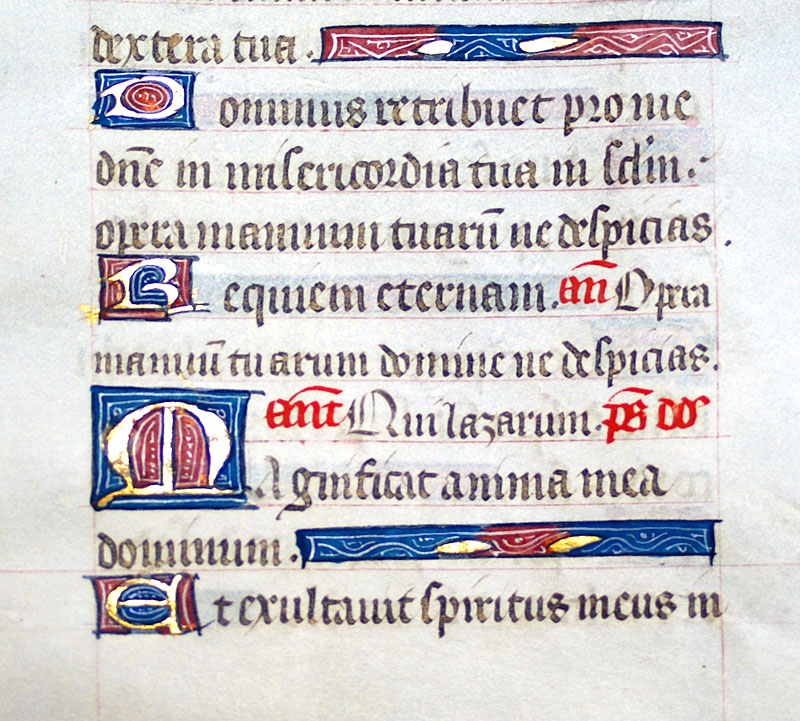 dextera tua.
Dominus retribuet pro me
dñe in misericordia tua in sclm.
opera manuum tuarũ ne despicias.
Requiem eternam. añ Opera
manuũ tuarum domine ne despicias.
añt Qui lazarum. ps dd
MAgnificat anima mea
dominum.
Et exultauit spiritus meus in